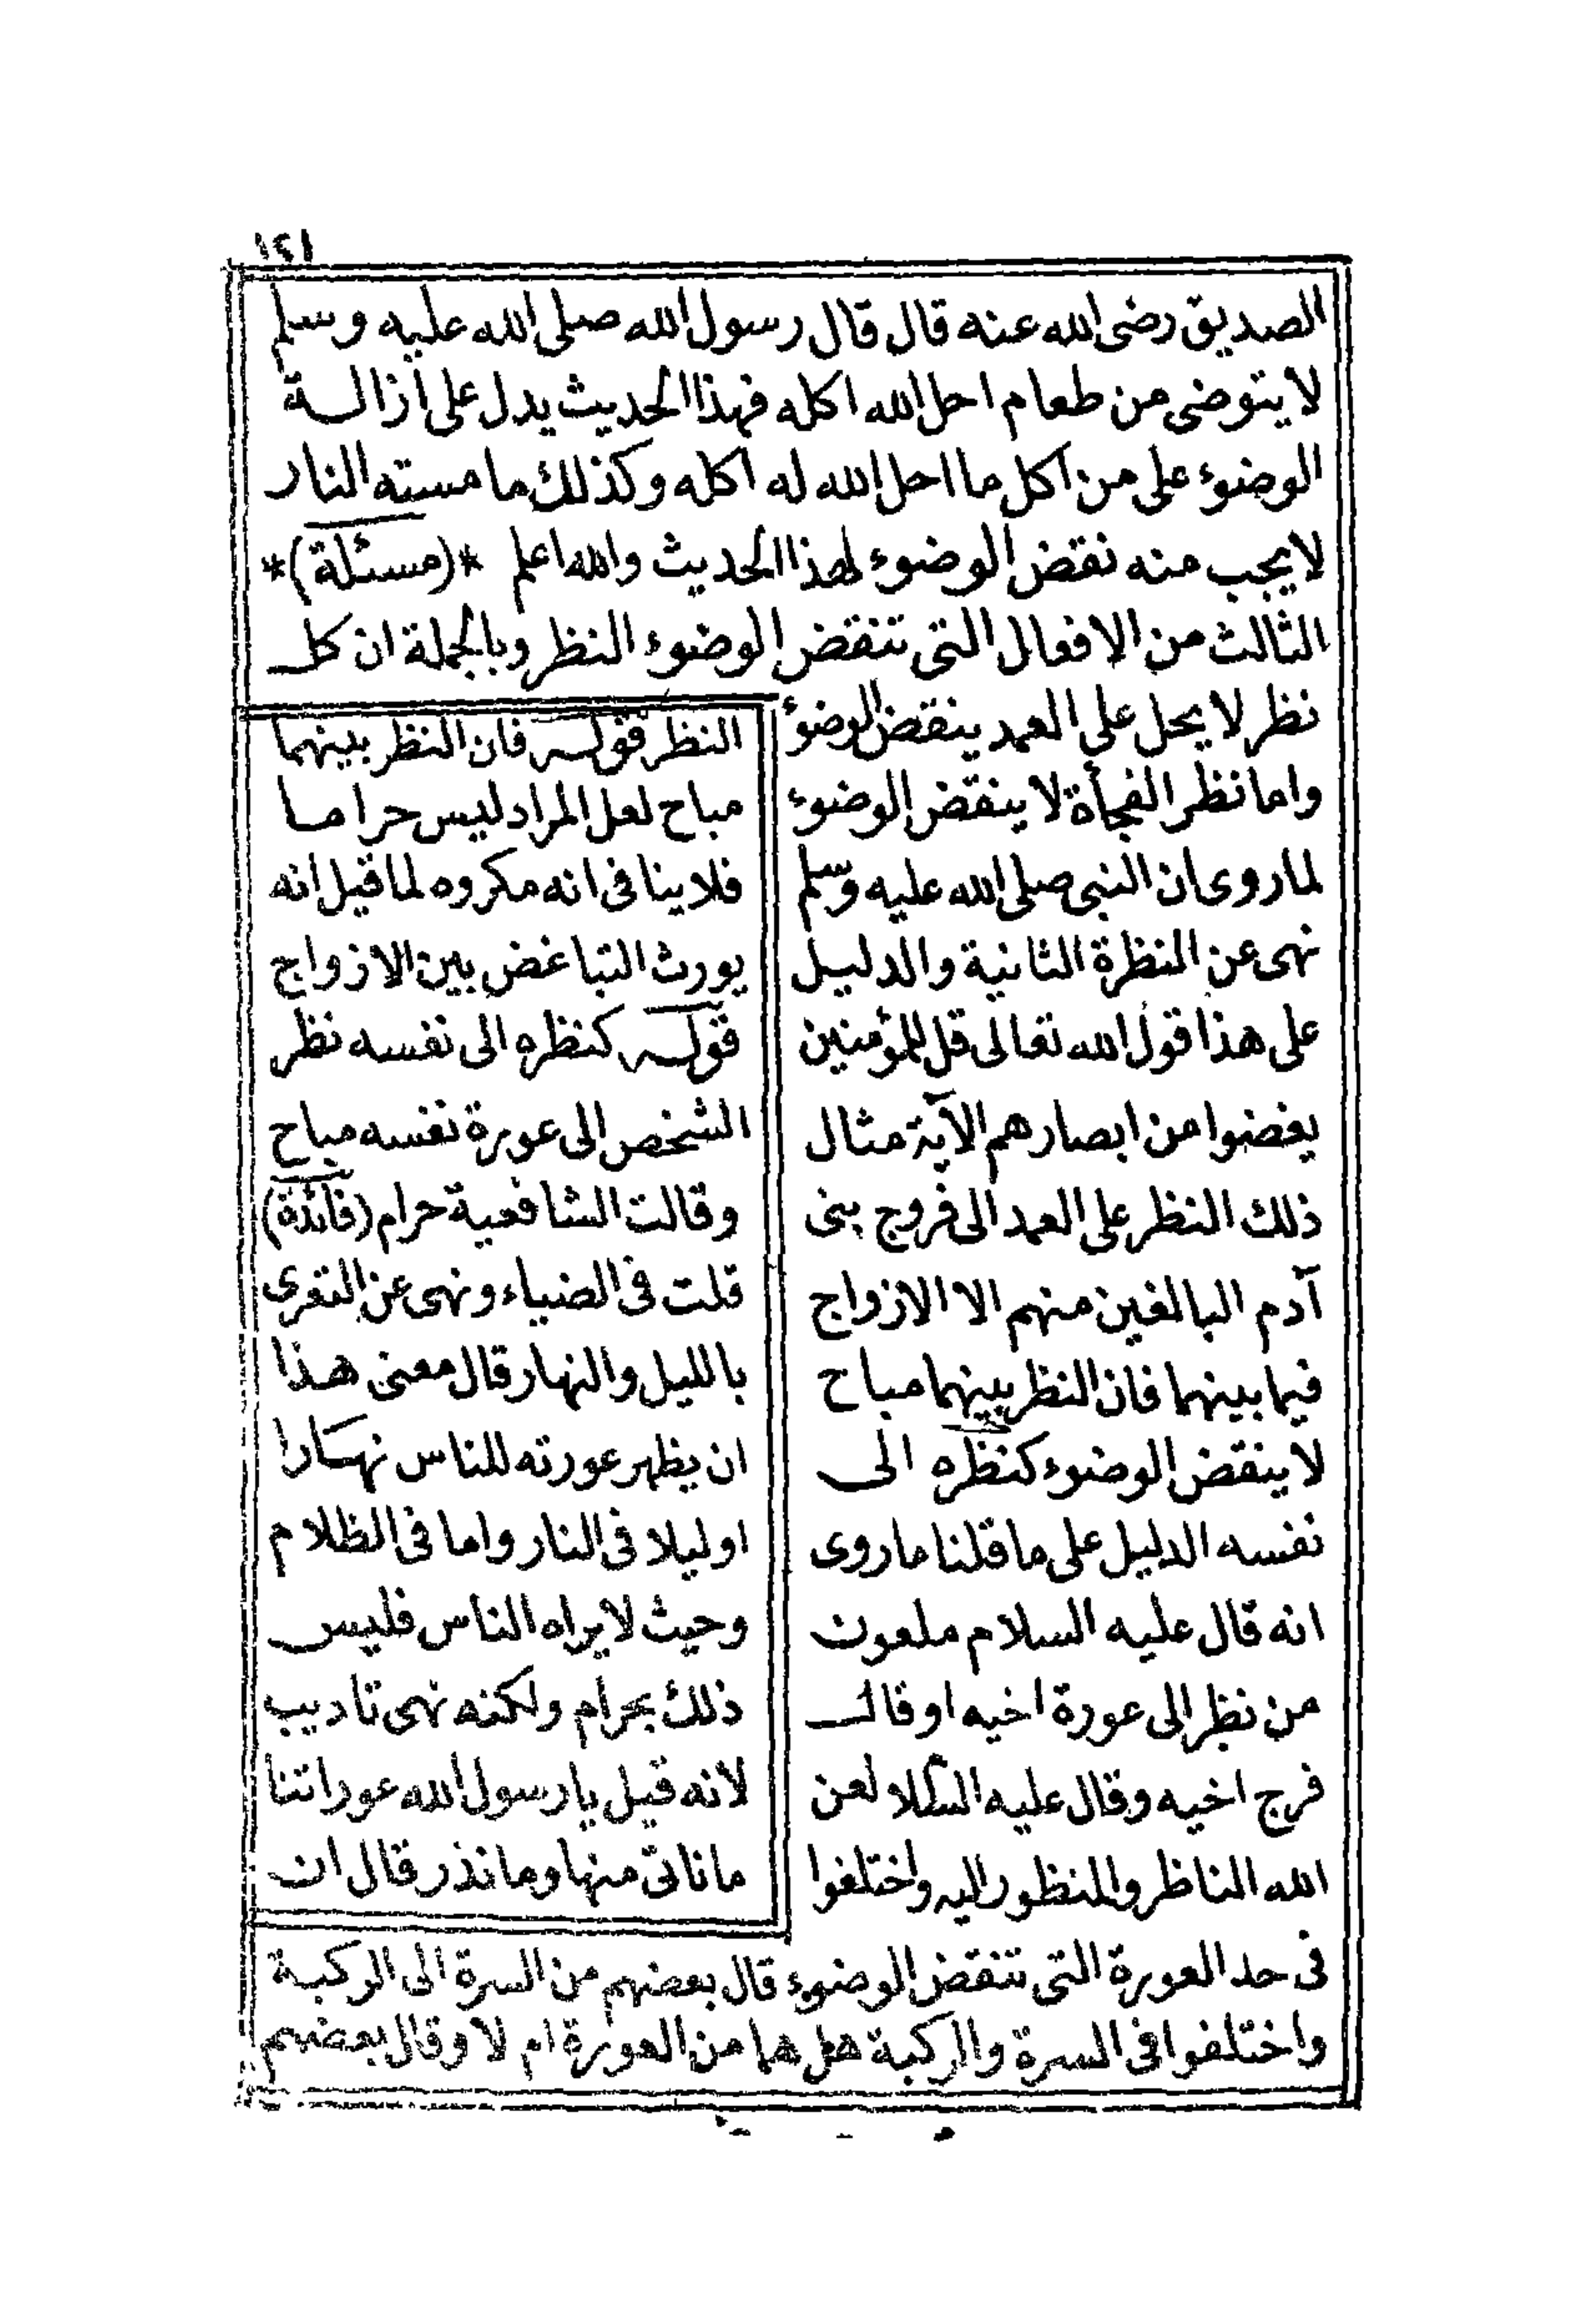 ١٢١
الصديق رضى الله عنه قال قال رسول الله صلى الله عليه وسلم
لا يتوضى من طعام احل الله اكله فهذا الحديث يدل على ازالة
الوضوء على من اكل ما احل الله له اكله وكذلك ما مسته النار
لا يجب منه نقض الوضوء لهذا الحديث والله اعلم *(مسئلة)*
الثالث من الافعال التى تنقض الوضوء النظر وبالجملة ان كل
نظر لا يحل على العمد ينقض الوضوء
واما نظر الفجأة لا ينقض الوضوء
لما روى ان النبى صلى الله عليه وسلم
نهى عن النظرة الثانية والدليل
على هذا قول الله تعالى قل للمؤمنين
يغضوا من ابصارهم الآية مثال
ذلك النظر على العمد الى فروج بنى
آدم البالغين منهم الا الازواج
فيما بينهما فان النظر بينهما مباح
لا ينقض الوضوء كنظره الى
نفسه الدليل على ما قلنا ما روى
انه قال عليه السلام ملعون
من نظر الى عورة اخيه او قال
فرج اخيه وقال عليه السلام لعن
الله الناظر والمنظور اليه واختلفوا
فى حد العورة التى تنقض الوضوء قال بعضهم من السرة الى الركبة
واختلفوا فى السرة والركبة هل هما من العورة ام لا وقال بعضهم
النظر قوله فان النظر بينهما
مباح لعل المراد ليس حراما
فلا ينافى انه مكروه لما قيل انه
يورث التباغض بين الازواج
قوله كنظره الى نفسه نظر
الشخص الى عورة نفسه مباح
وقالت الشافعية حرام (فائدة)
قلت فى الضياء ونهى عن التعرى
بالليل والنهار قال معنى هذا
ان يظهر عورته للناس نهارا
او ليلا فى النار واما فى الظلام
وحيث لا يراه الناس فليس
ذلك بحرام ولكنه نهى تاديب
لانه قيل يا رسول الله عوراتنا
ما ناتى منها وما نذر قال ان